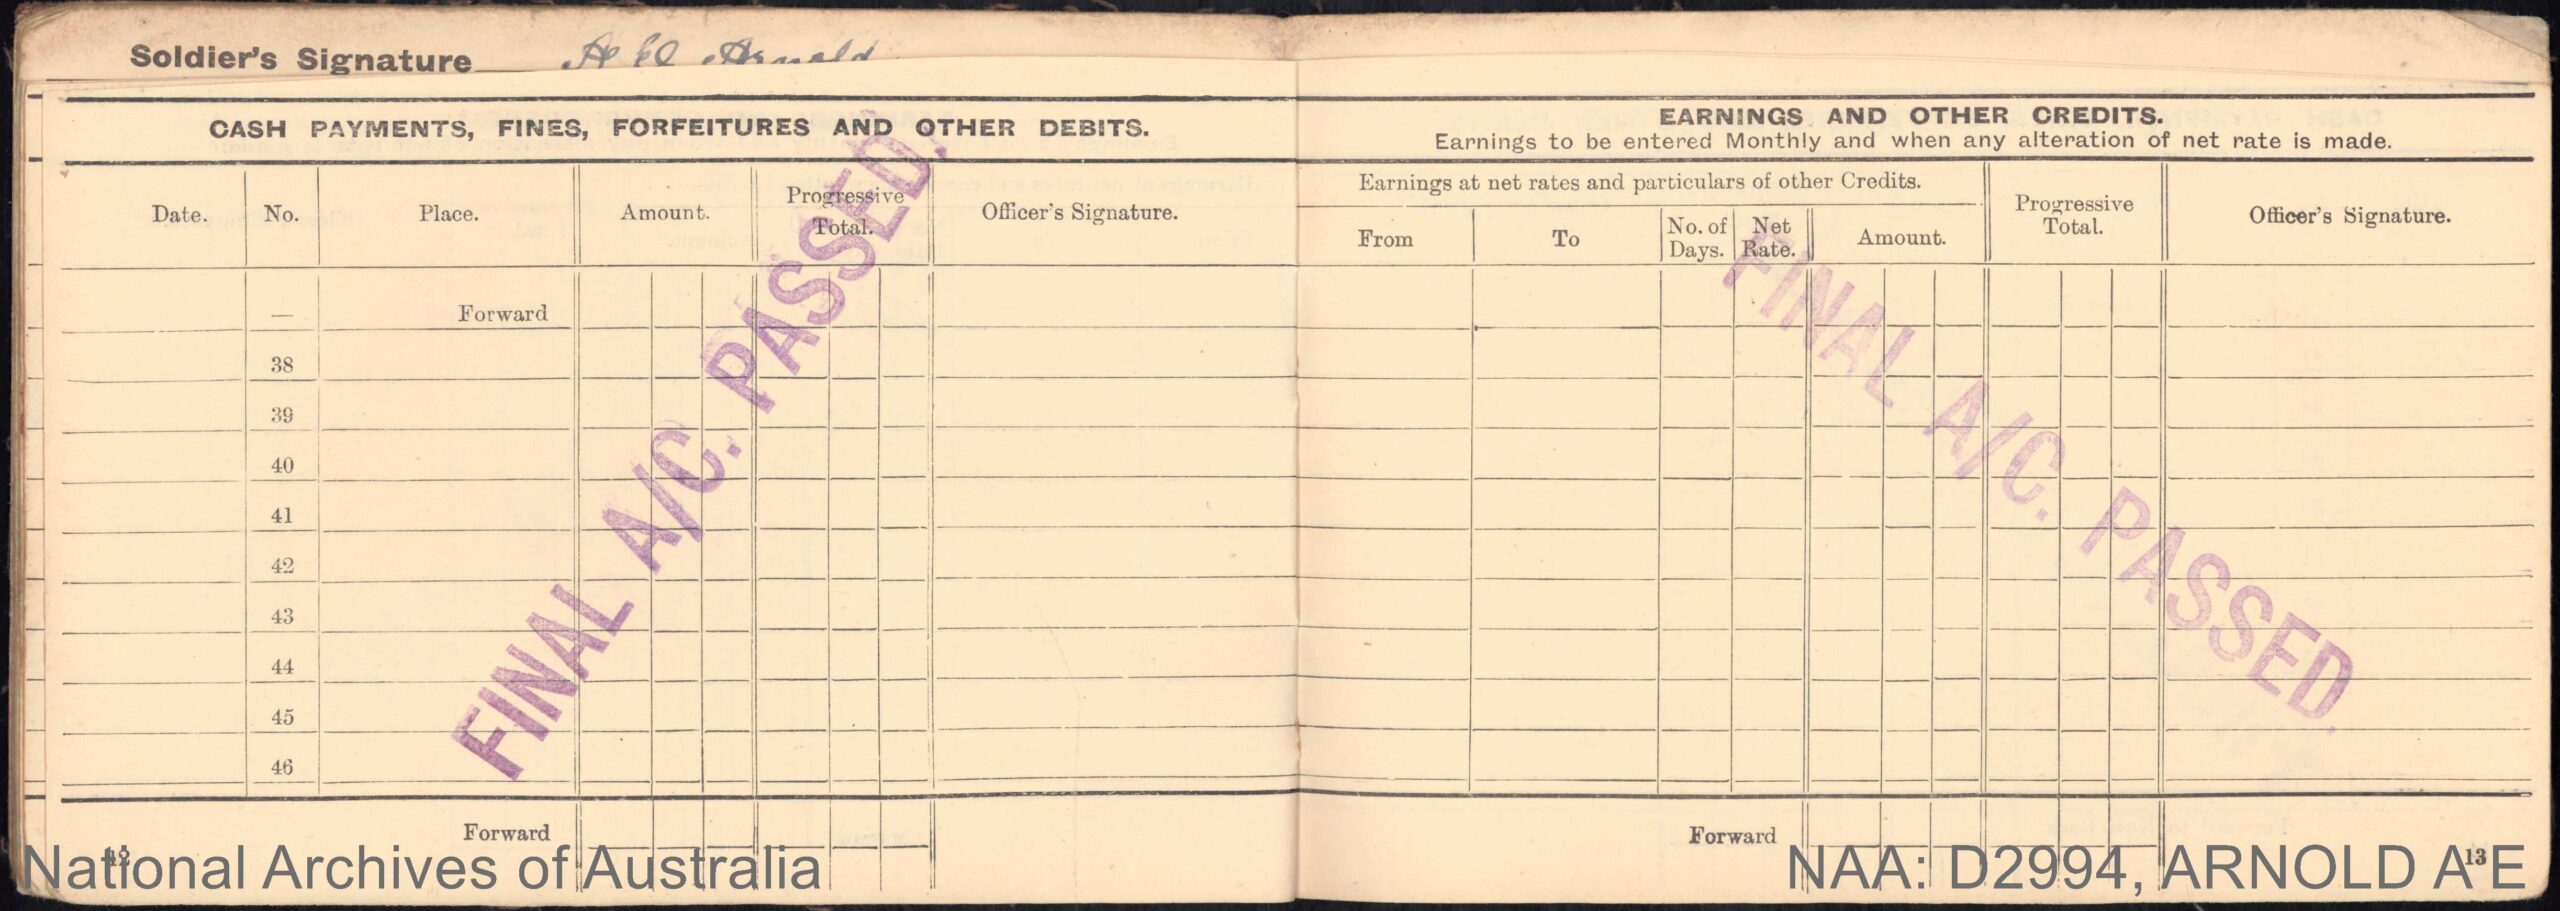 Soldier's Signature Arnold
CASH PAYMENTS, FINES, FORFEITURES AND OTHER DEBITS.
Date. No. Place. Amount. Progressive Total. Officer's Signature.
— Forward
38
39
40
41
42
43
44
45
46
Forward
12
FINAL A/C. PASSED.
EARNINGS AND OTHER CREDITS.
Earnings to be entered Monthly and when any alteration of net rate is made.
Earnings at net rates and particulars of other Credits.
From To No. of Days. Net Rate. Amount. Progressive Total. Officer's Signature.
Forward
13
FINAL A/C. PASSED.
National Archives of Australia
NAA: D2994, ARNOLD A E